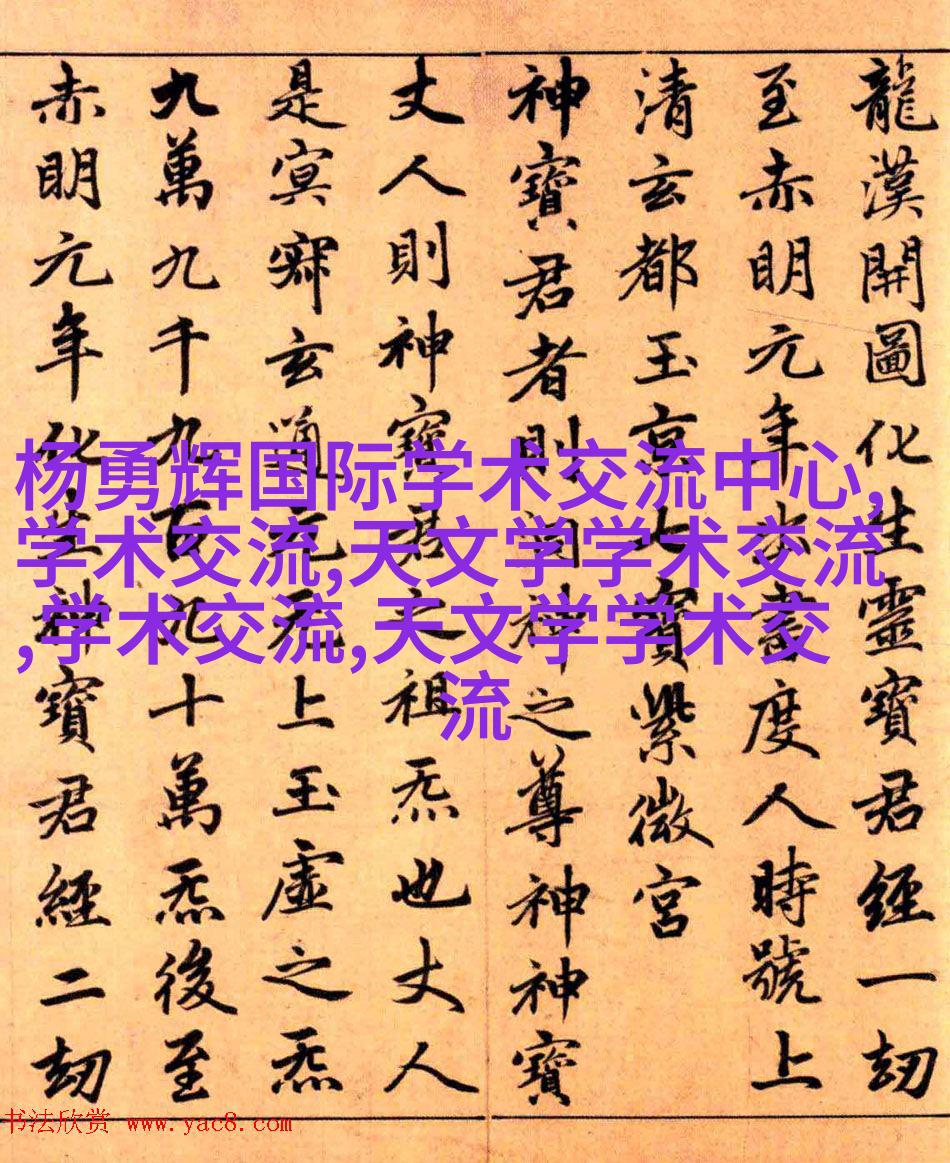 龍漢開圖化生靈寶君經一劫
至赤明元年出書度人時號上
清玄都玉京七寳紫微宮
神寶君者則洞神之尊神神寶
丈人則神寶君之祖炁也丈人
是寘寂玄通元无上玉虛之炁
九萬九千九百九十萬炁後至
赤明元年化生神寶君經二劫
杨勇辉国际学术交流中心,
学术交流,天文学学术交流
,学术交流,天文学学术交
流
书法欣赏 www.yac8.com